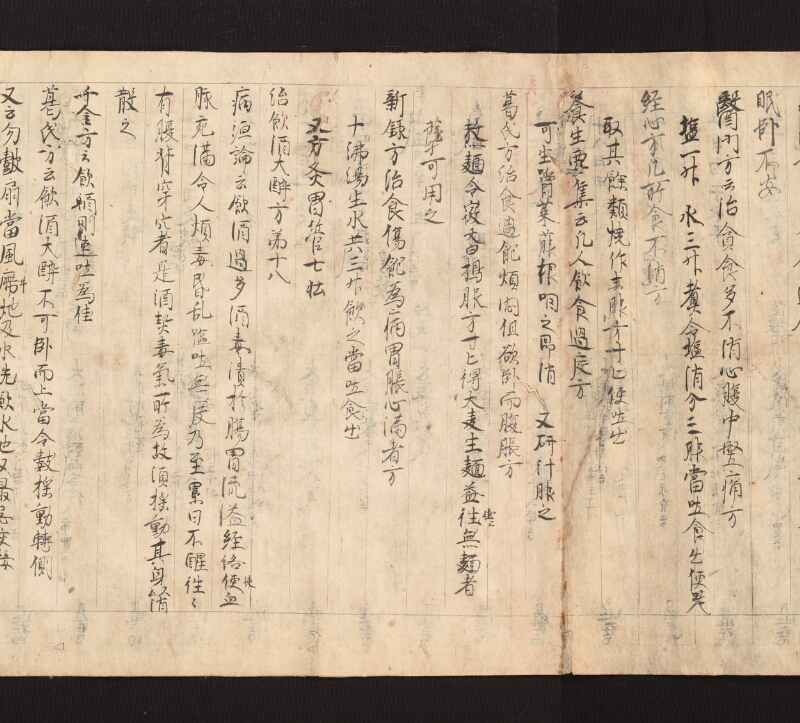 眠卧不安
醫門方云治貪食多不消心腹中堅痛方
塩一升 水三升煮令塩消分三服當吐食出便是
経心方凡所食不消方
取其餘類燒作末服方寸匕便吐出
養生要集云凡人飲食過度方
可生嚼菜菔根咽之即消 又研汁服之
葛氏方治食過飽煩悶但欲卧而腹脹方
熬麺令微香搗服方寸匕得大麦生麺益佳無麺者
糵可用之
新録方治食傷飽為病胃脹心滿者方
十沸湯生水共三升飲之當吐食出
又方灸胃管七壮
治飲酒大醉方第十八
病源論云飲酒過多酒毒漬於腸胃流溢経络使血
脉充滿令人煩毒昏乱嘔吐無度乃至累日不醒往々
有腹背穿穴者是酒熱毒氣所為故須揺動其身以消
散之
千金方云飲
吐為佳
葛氏方云飲酒大醉不可卧而上當令數揺動轉側
又云勿鼓扇當風席地及水洗飲水也又最忌